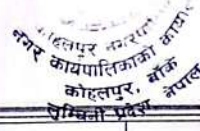 कोहलपुर नगरपा
नगर कार्यपालिकाको कार्या
कोहलपुर, बाँके
लुम्बिनी प्रदेश, नेपाल